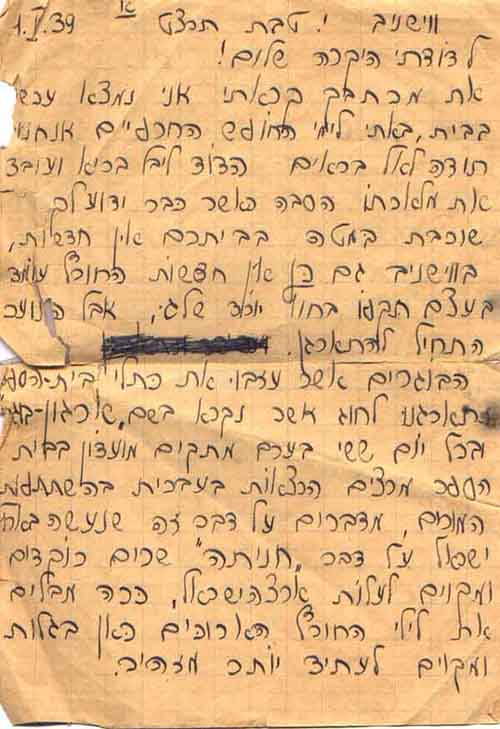 ווישניב י' טבת תרצט א' 1.I.39
לדודתי היקרה שלום!
את מכתבך קראתי אני נמצא עכשו
בבית, באתי לימי החופש החרפיים אנחנו
תודה לאל בריאים הדוד ליבל בריא ועובד
את מלאכתו הסבה כאשר כבר ידוע לך
שוכבת במטה בביתכם אין חדשות,
בווישניב גם כן אין חדשות החורף עומד
בעצם תקפו בחוץ יורד שלג, אבל הנוער
התחיל להתארגן.
הבוגרים אשר עזבו את כתלי בית-הספר
התארגנו לחוג אשר נקרא בשם "ארגון-
ובכל יום ששי בערב מתקים מועדון בבית
הספר מרצים הרצאות בעברית בהשתתפות
המורים, מדברים על דבר זה שנעשה בארץ
ישראל על דבר "חניתה" שרים רוקדים
ומקוים לעלות ארצה ישראל, ככה מבלים
את לילי החורף הארוכים כאן בגלות
ומקוים לעתיד יותר מזהיר.